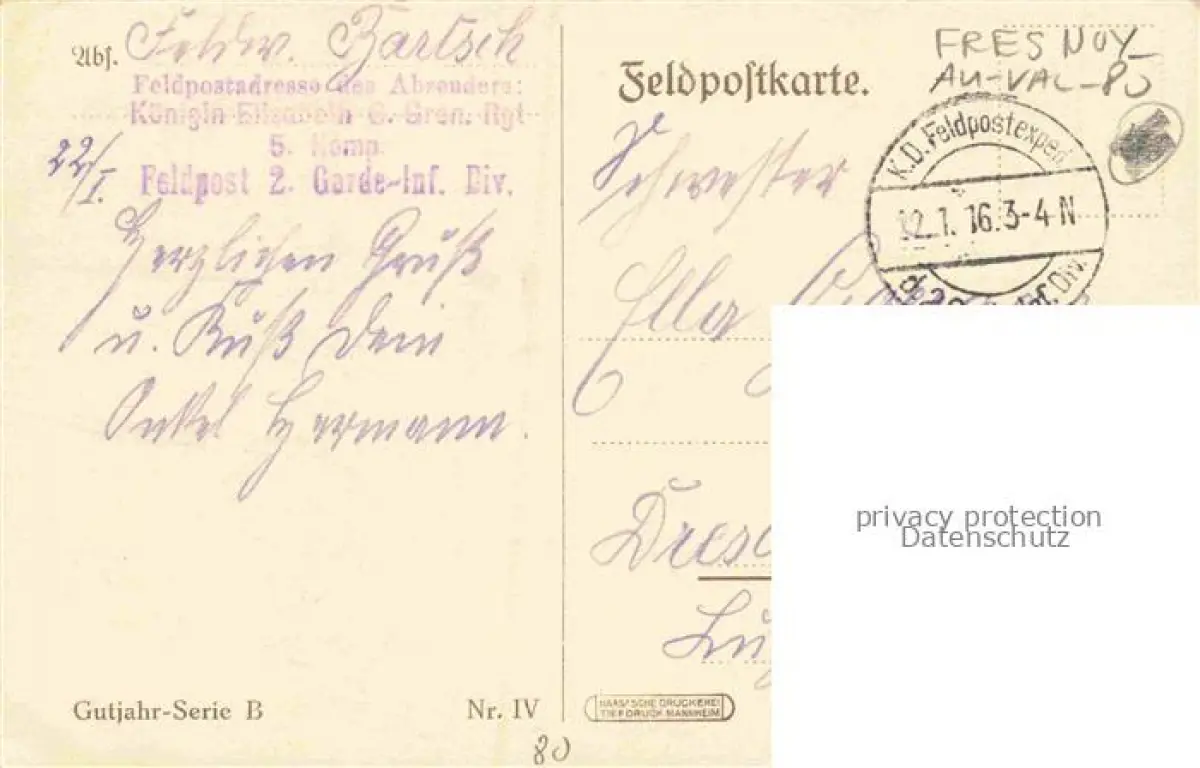 Abs. Feldw. Bartsch
Feldpostadresse des Absenders:
Königin Elisabeth G. Gren. Rgt
5. Komp.
Feldpost 2. Garde-Inf. Div.
22/I.
Herzlichen Gruß
u. Kuß Dein
Onkel Hermann.
Gutjahr-Serie B
Nr. IV
80
Feldpostkarte.
FRESNOY-
AU-VAL-80
K.D. Feldpostexped
22.1.16.3-4 N
Inf. Div.
Schwester
Ella
HAAS'SCHE DRUCKEREI
TIEFDRUCK MANNHEIM
privacy protection
Datenschutz